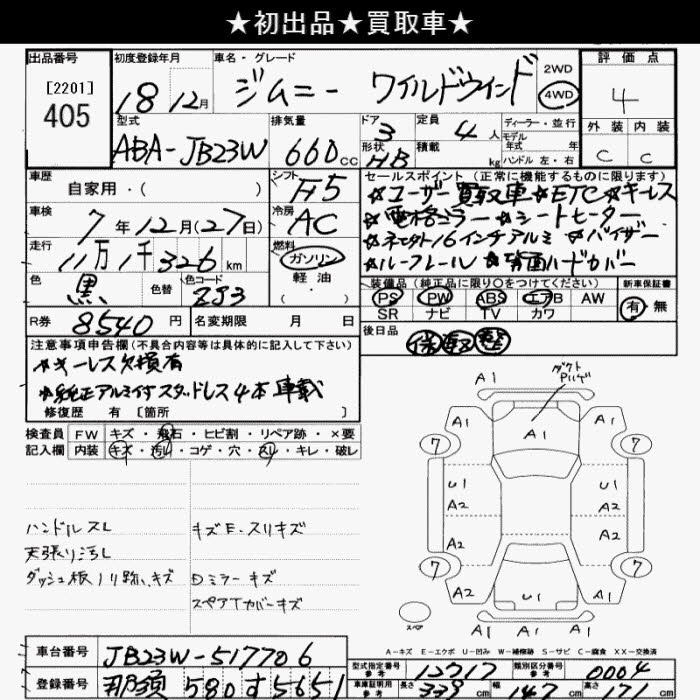 ★初出品★買取車★
出品番号 初度登録年月 車名・グレード 2WD 4WD 評価点
[2201]
405 18 12月 ジムニー ワイルドウインド 4
型式 排気量 ドア 3 定員 4人 ディーラー・並行 外装 内装
ABA-JB23W 660cc 形状 HB 積載 kg モデル年式 年式 ハンドル 左・右 C C
車歴 自家用・( ) シフト F5 セールスポイント (正常に機能するものに限ります)
☆ユーザー買取車 ☆ETC ☆キーレス
車検 7年12月(27日) 冷房 AC ☆電格ミラー ☆シートヒーター
走行 11万1千326km 燃料 ガソリン 軽油 ( ・ )
☆社外16インチアルミ ☆バイザー
☆ルーフレール ☆背面ハードカバー
色 黒 色替 色コード ZJ3 装備品 (純正品に限り○をつけてください) 新車保証書
PS PW ABS エアB AW 有 無
SR ナビ TV カワ
R券 8540円 名変期限 月 日 後日品 保 軽 整
注意事項申告欄(不具合内容等は具体的に記入して下さい)
☆キーレス欠損有
☆純正アルミ付スタッドレス4本車載
修復歴 有 [箇所 ]
検査員 FW キズ・飛石・ヒビ割・リペア跡・×要
記入欄 内装 キズ・汚れ・コゲ・穴・スレ・キレ・破レ
ハンドルスレ キズE・スリキズ
天張り汚レ
ダッシュ板ノリ跡、キズ Dミラーキズ
スペアTカバーキズ
A1 ダクト
A1 A1 A1
7 7
U1 U1
A2 A2
A2 A2
7 7
A2 U1 A2
スペア A1 A1 A1
A-キズ E-エクボ U-凹み W-補修跡 S-サビ C-腐食 XX-交換済
車台番号 JB23W-517706
登録番号 那須 580 す 5651
型式指定番号 参考 12717 類別区分番号 参考 0004
車庫証明用 参考 長さ 339cm 幅 147cm 高さ cm